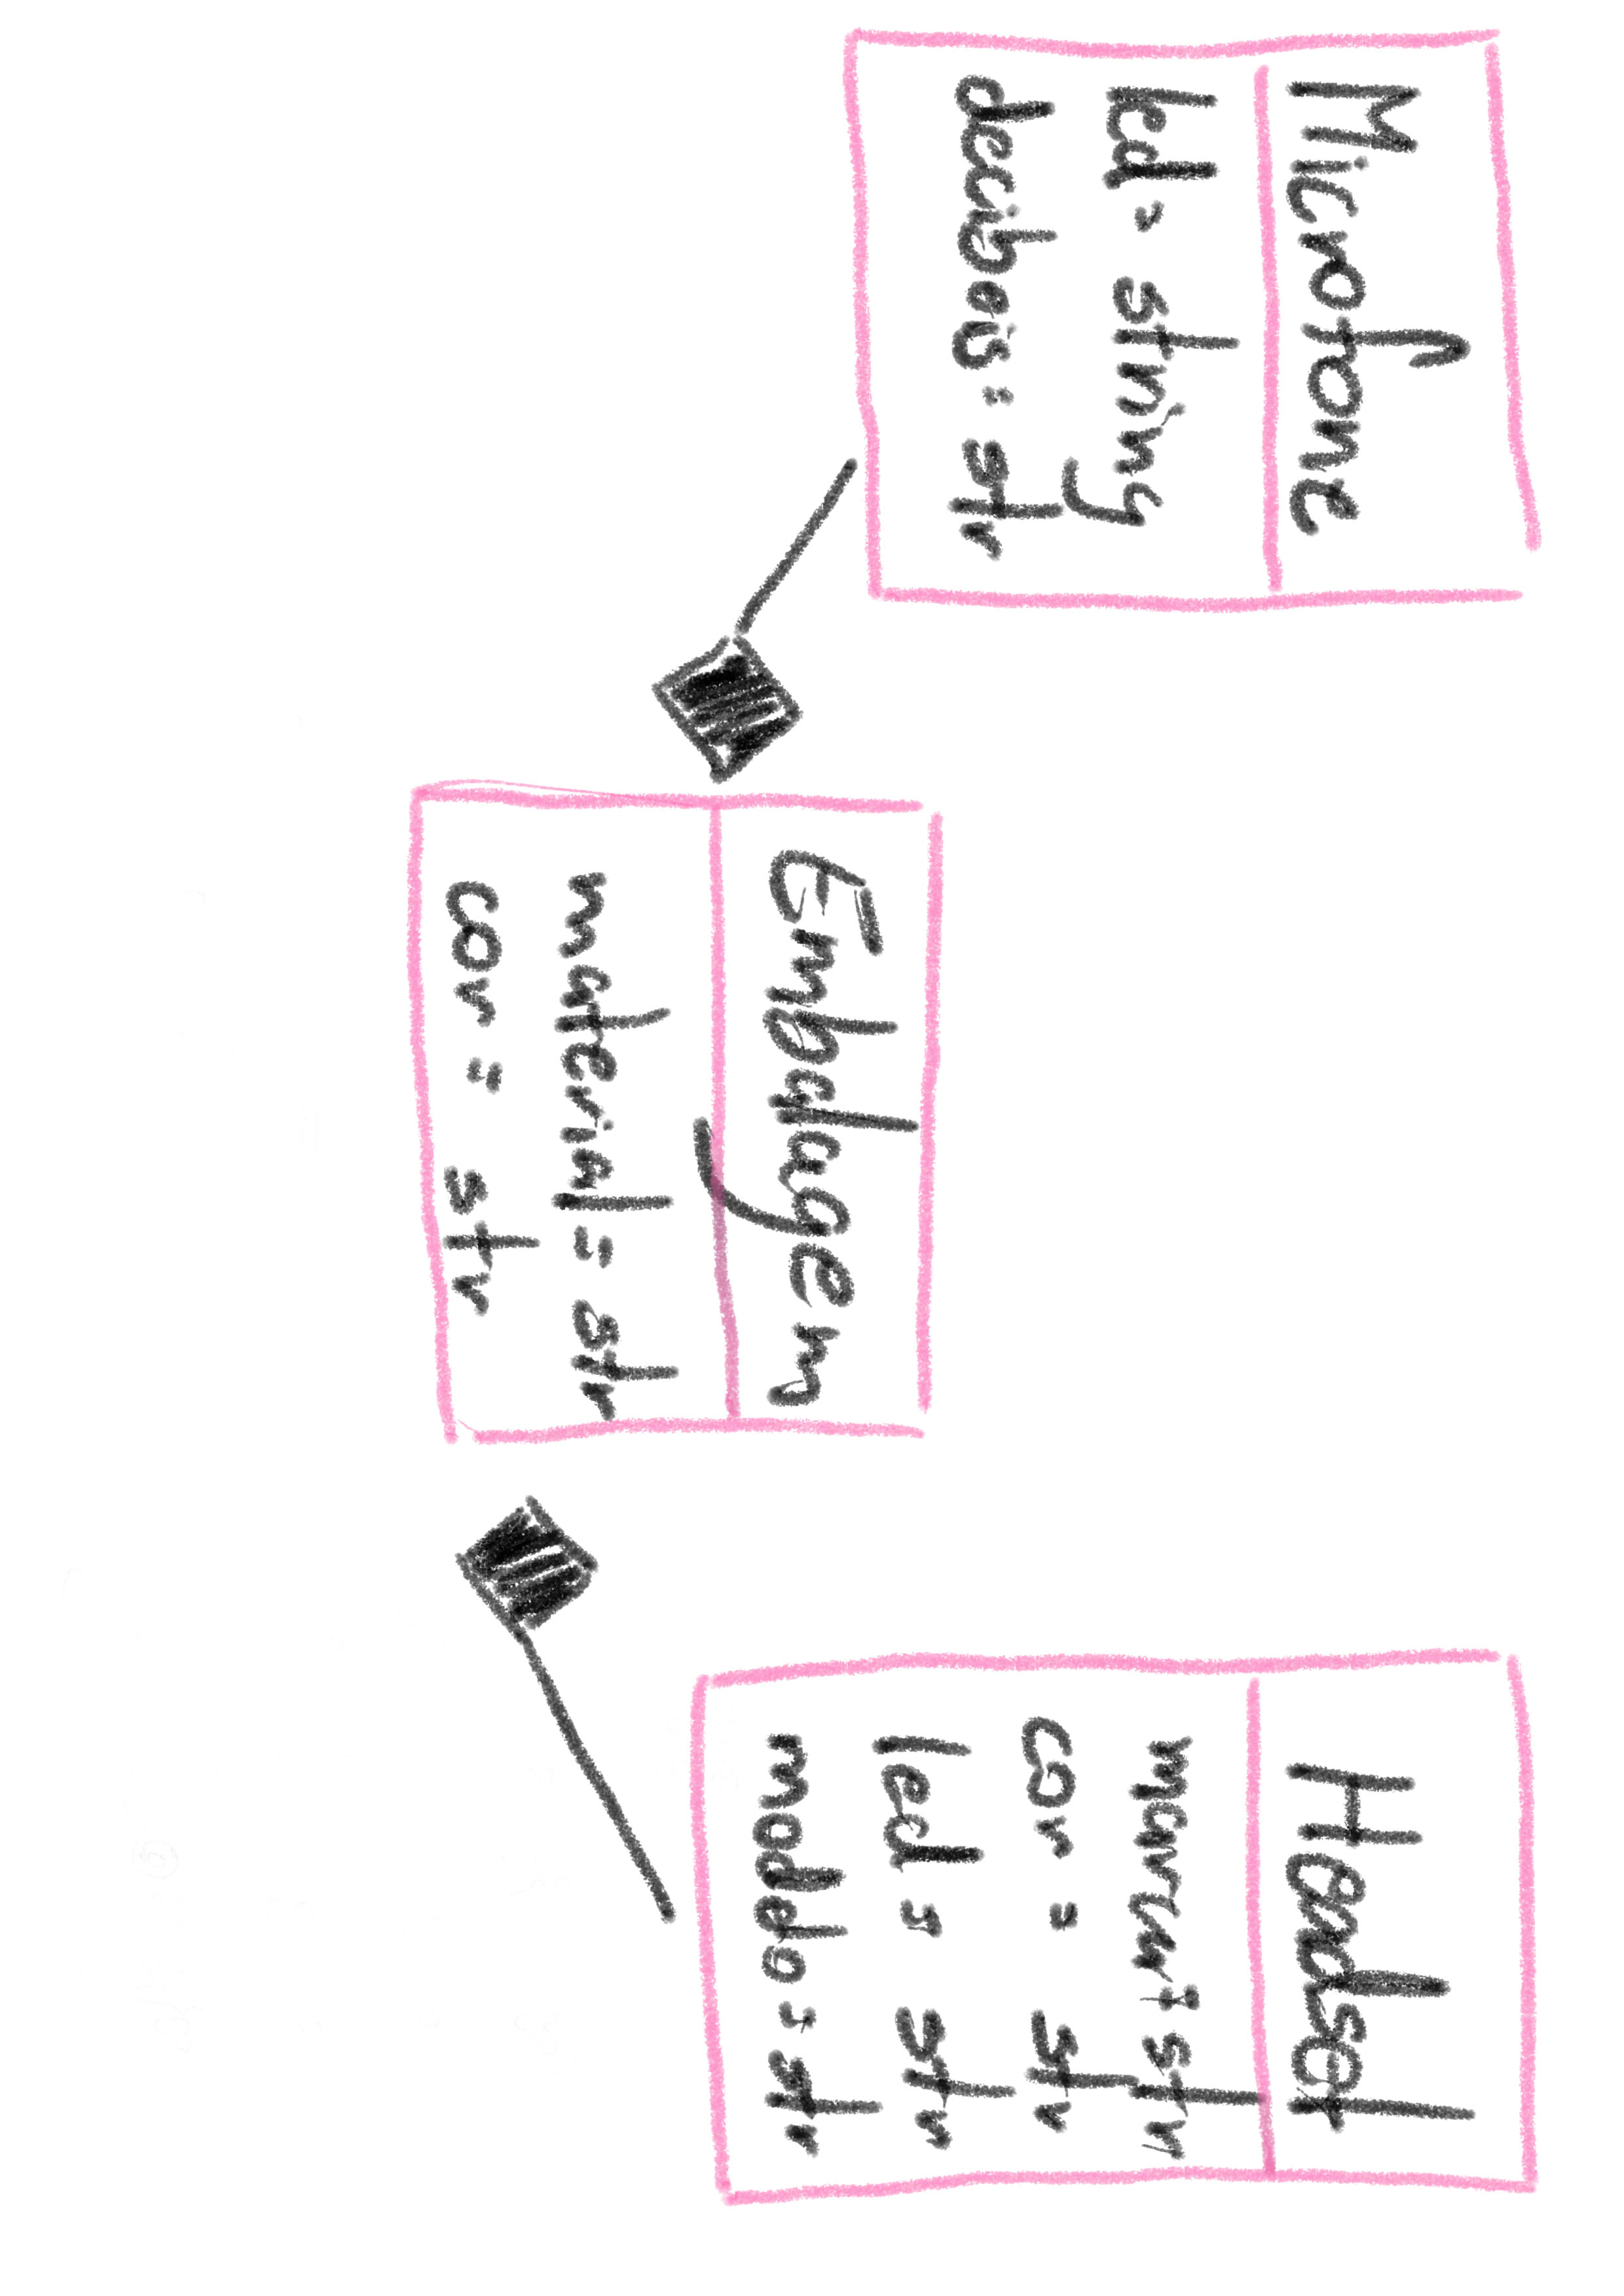 Microfone
led = string
decibeis : str
Embalagem
material = str
cor = str
Headset
marca : str
cor = str
led = str
modelo : str